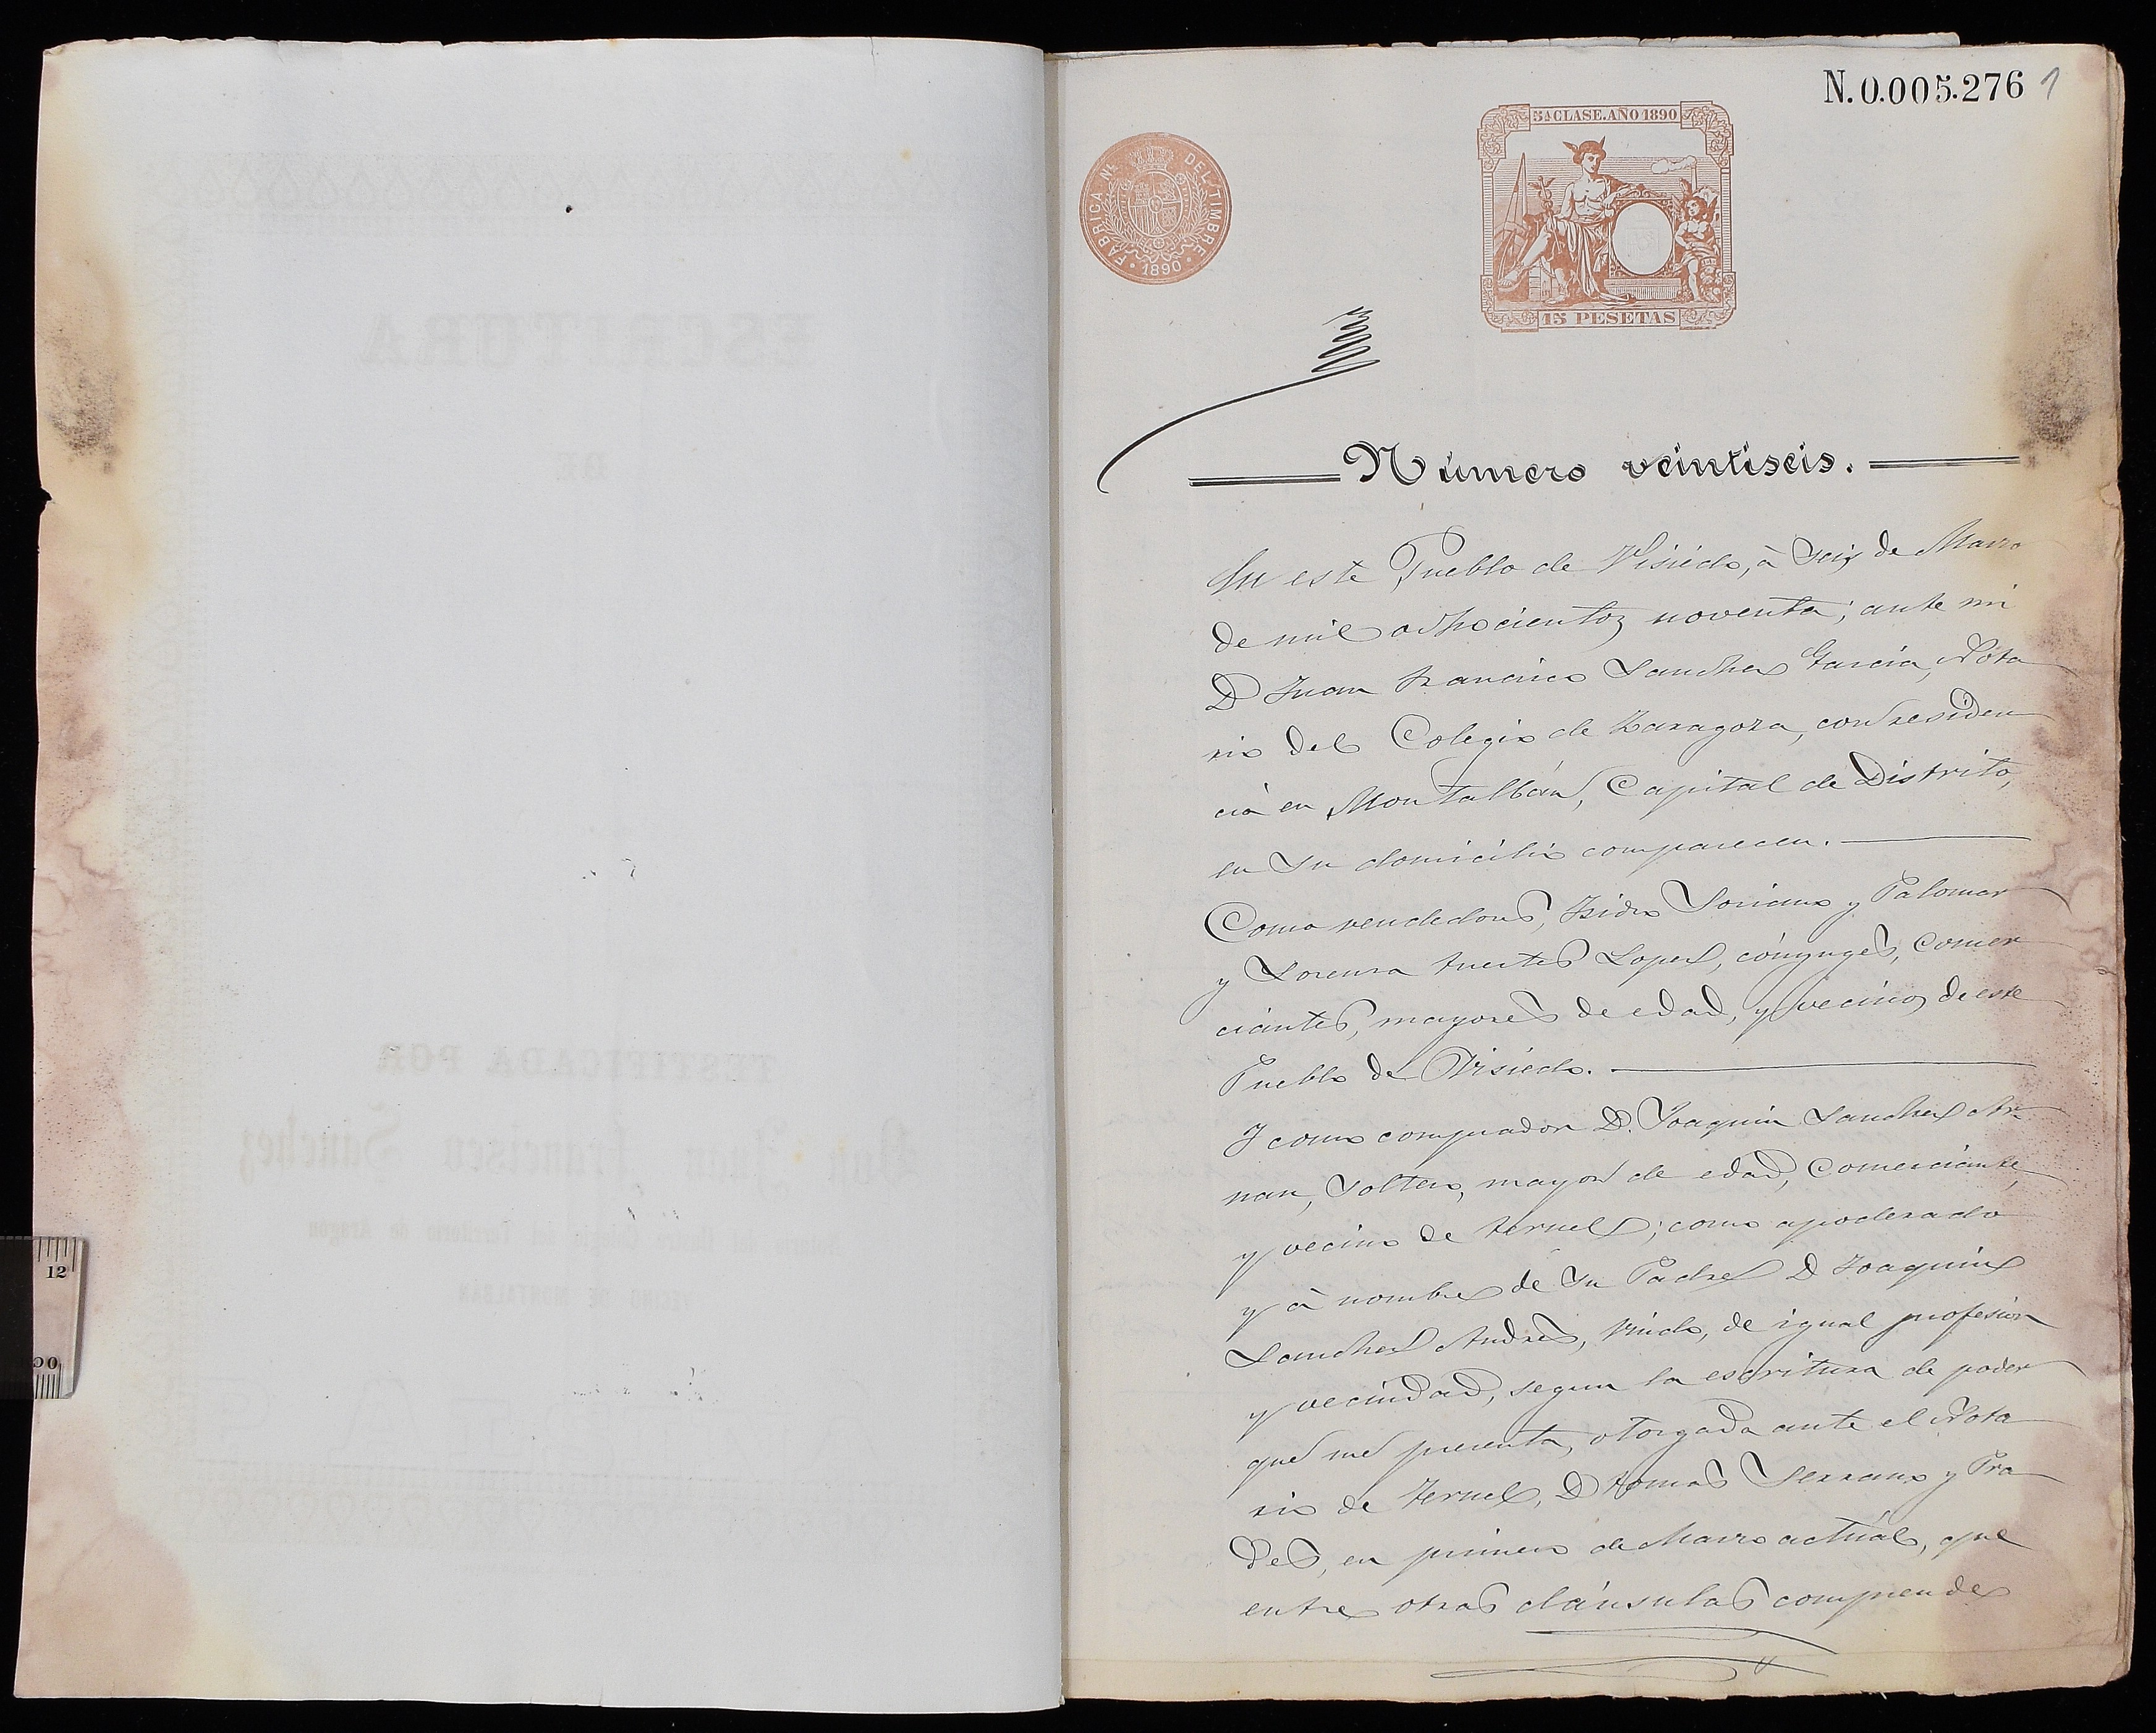 N.0.005.276 1
5ª CLASE. AÑO 1890
FÁBRICA Nᴸ DEL TIMBRE
1890
15 PESETAS
Número veintiseis.
En este Pueblo de Visiedo, à seis de Marzo
de mil ochocientos noventa; ante mi
D Juan Francisco Sanchez Garcia, Nota
rio del Colegio de Zaragoza, con residen
cia en Montalbán, Capital de Distrito,
en su domicilio comparecen.
Como vendedores, Isidro Soriano y Palomar
y Lorenza Fuertes Lopez, cónyuges, Comer
ciantes, mayores de edad, y vecinos de este
Pueblo de Visiedo.
Y como comprador D. Joaquin Sanchez
nan, soltero, mayor de edad, Comerciante,
y vecino de Teruel; como apoderado
y à nombre de su Padre D Joaquin
Sanchez Andres, viudo, de igual profesion
y vecindad, segun la escritura de poder
que me presenta, otorgada ante el Nota
rio de Teruel, D Tomas Serrano y Pra
des, en primero de Marzo actúal, que
entre otras cláusulas comprende
ESCRITURA
DE
TESTIFICADA POR
Don Juan Francisco Sanchez
del Territorio de Aragon
VECINO DE MONTALBAN
12